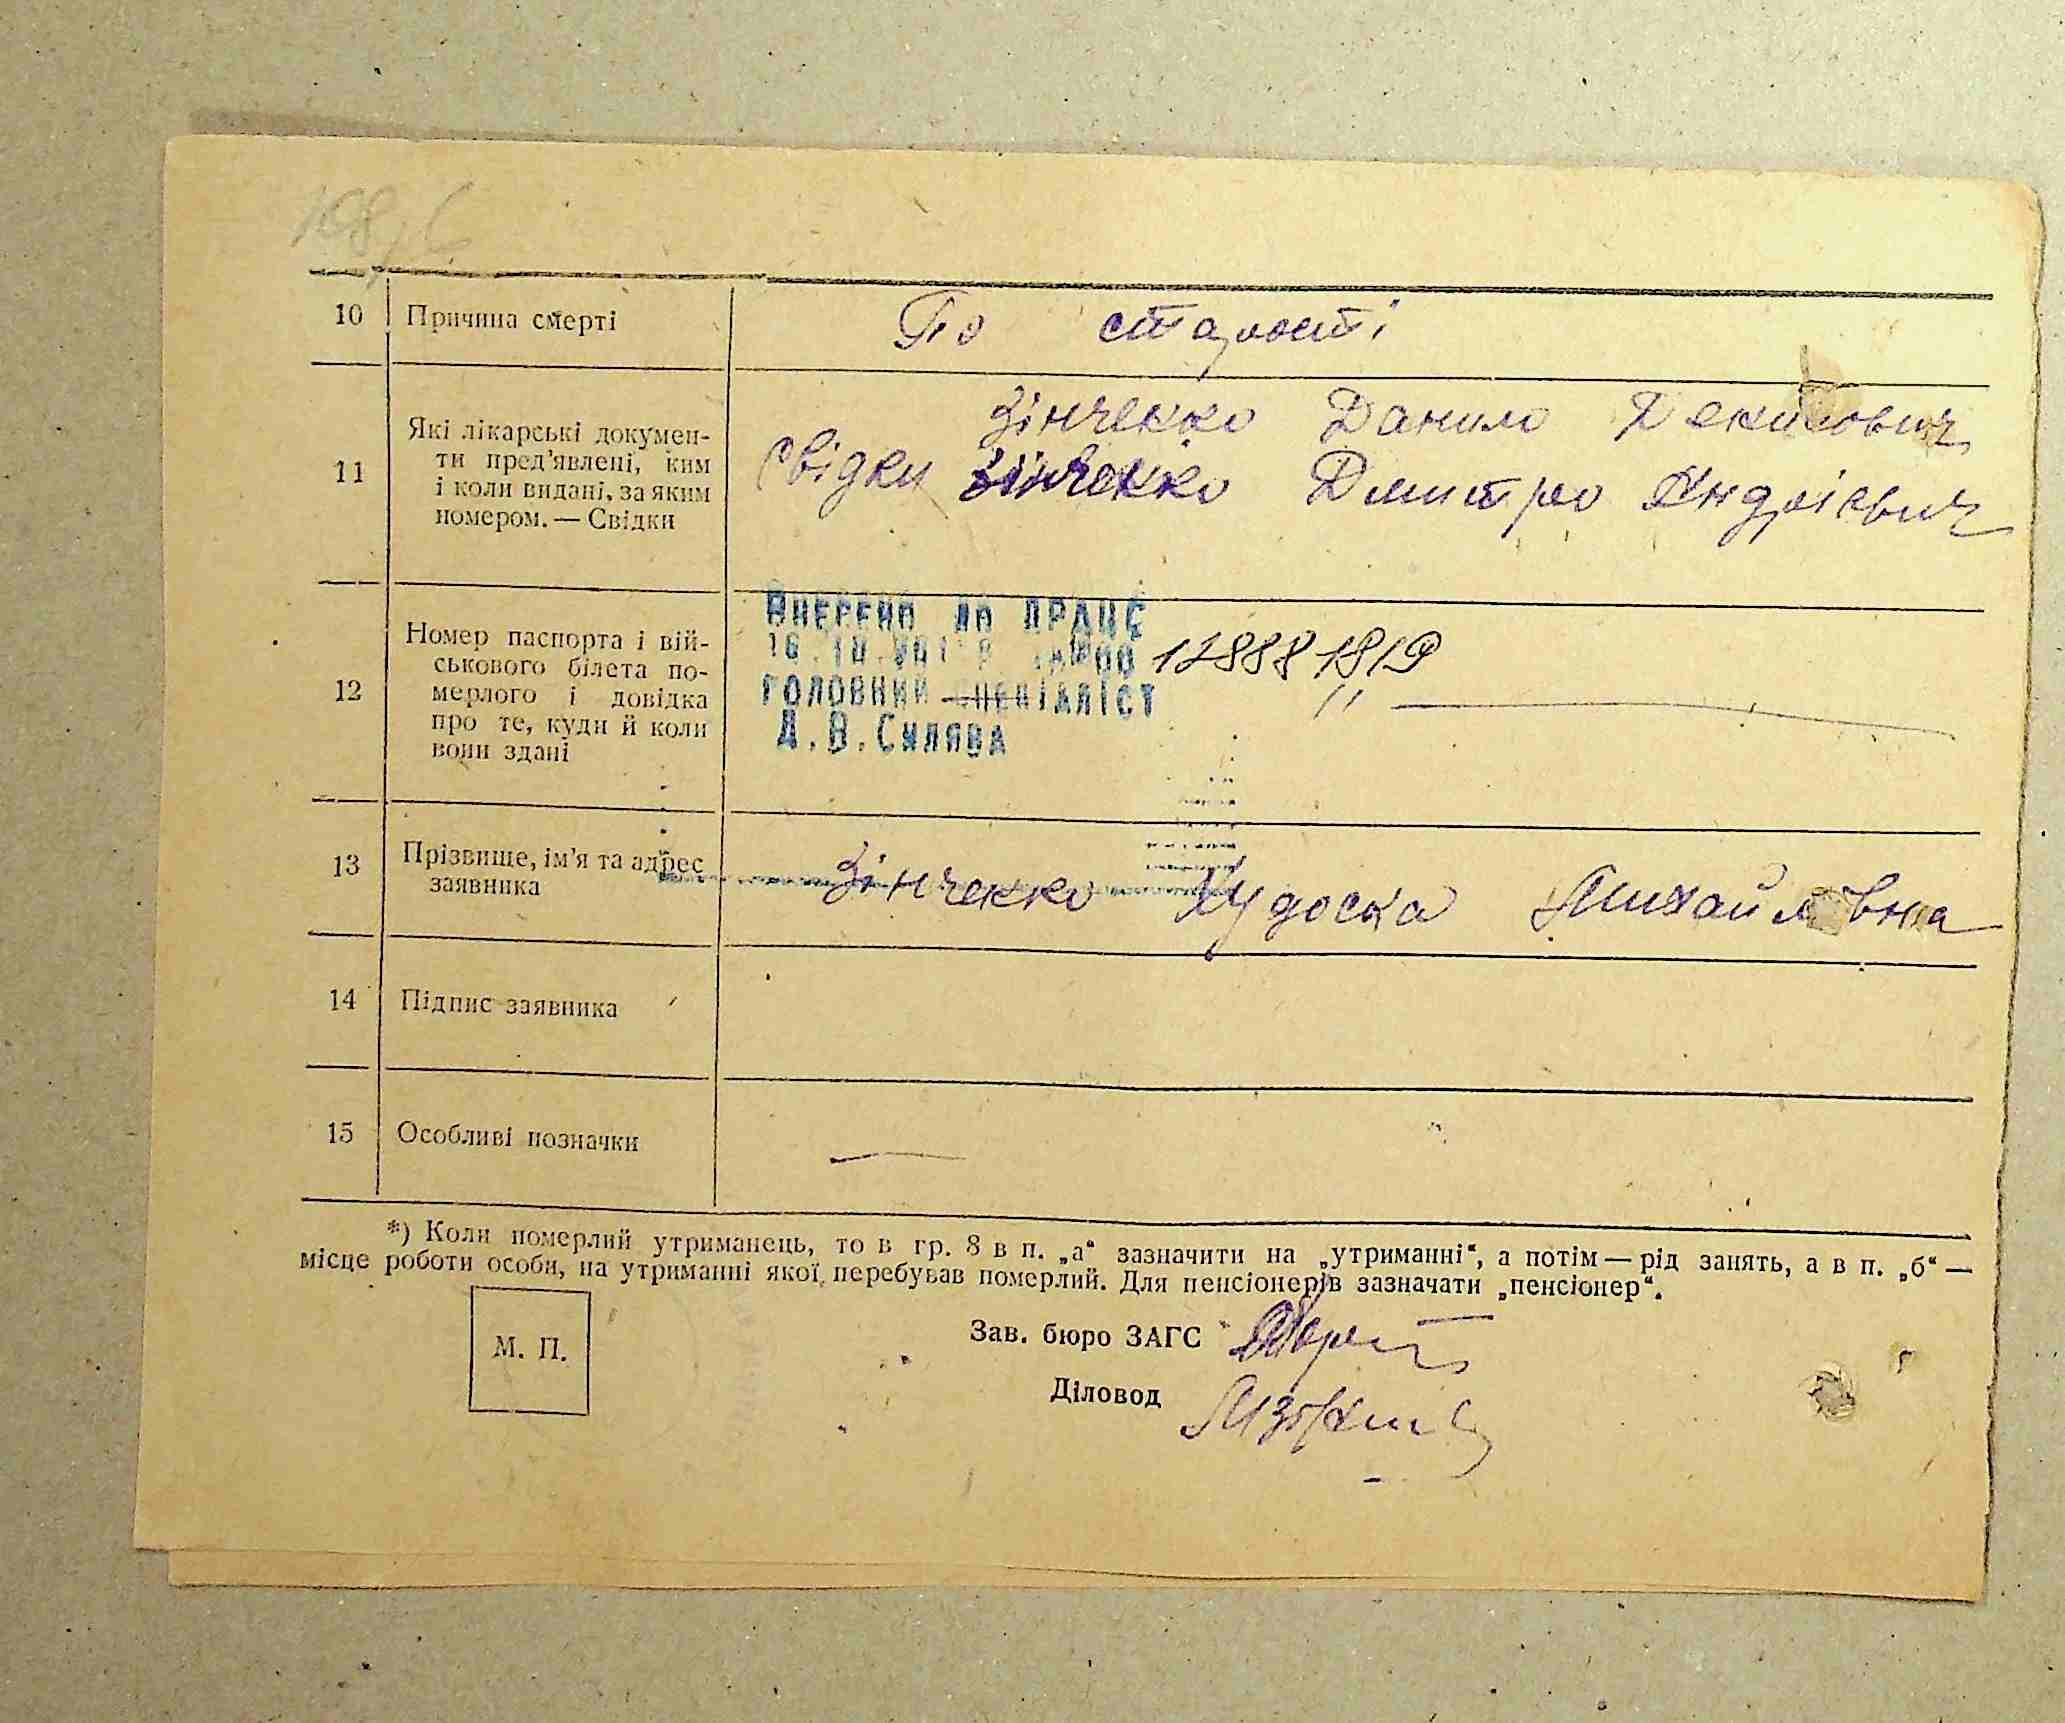 10 Причина смерті По старості
11 Які лікарські докумен-
ти пред'явлені, ким
і коли видані, за яким
номером. — Свідки
Зінченко Данило Декисович
Свідки Зінченко Дмитро Андрієвич
12 Номер паспорта і вій-
ськового білета по-
мерлого і довідка
про те, куди й коли
вони здані
Внесено до ДРАЦС
12888 1819
головний спеціаліст
Д.В.Силява
13 Прізвище, ім'я та адрес
заявника
Зінченко Михайловна
14 Підпис заявника
15 Особливі позначки
*) Коли померлий утриманець, то в гр. 8 в п. „а“ зазначити на „утриманні“, а потім — рід занять, а в п. „б“ —
місце роботи особи, на утриманні якої перебував померлий. Для пенсіонерів зазначати „пенсіонер“.
М. П.
Зав. бюро ЗАГС
Діловод